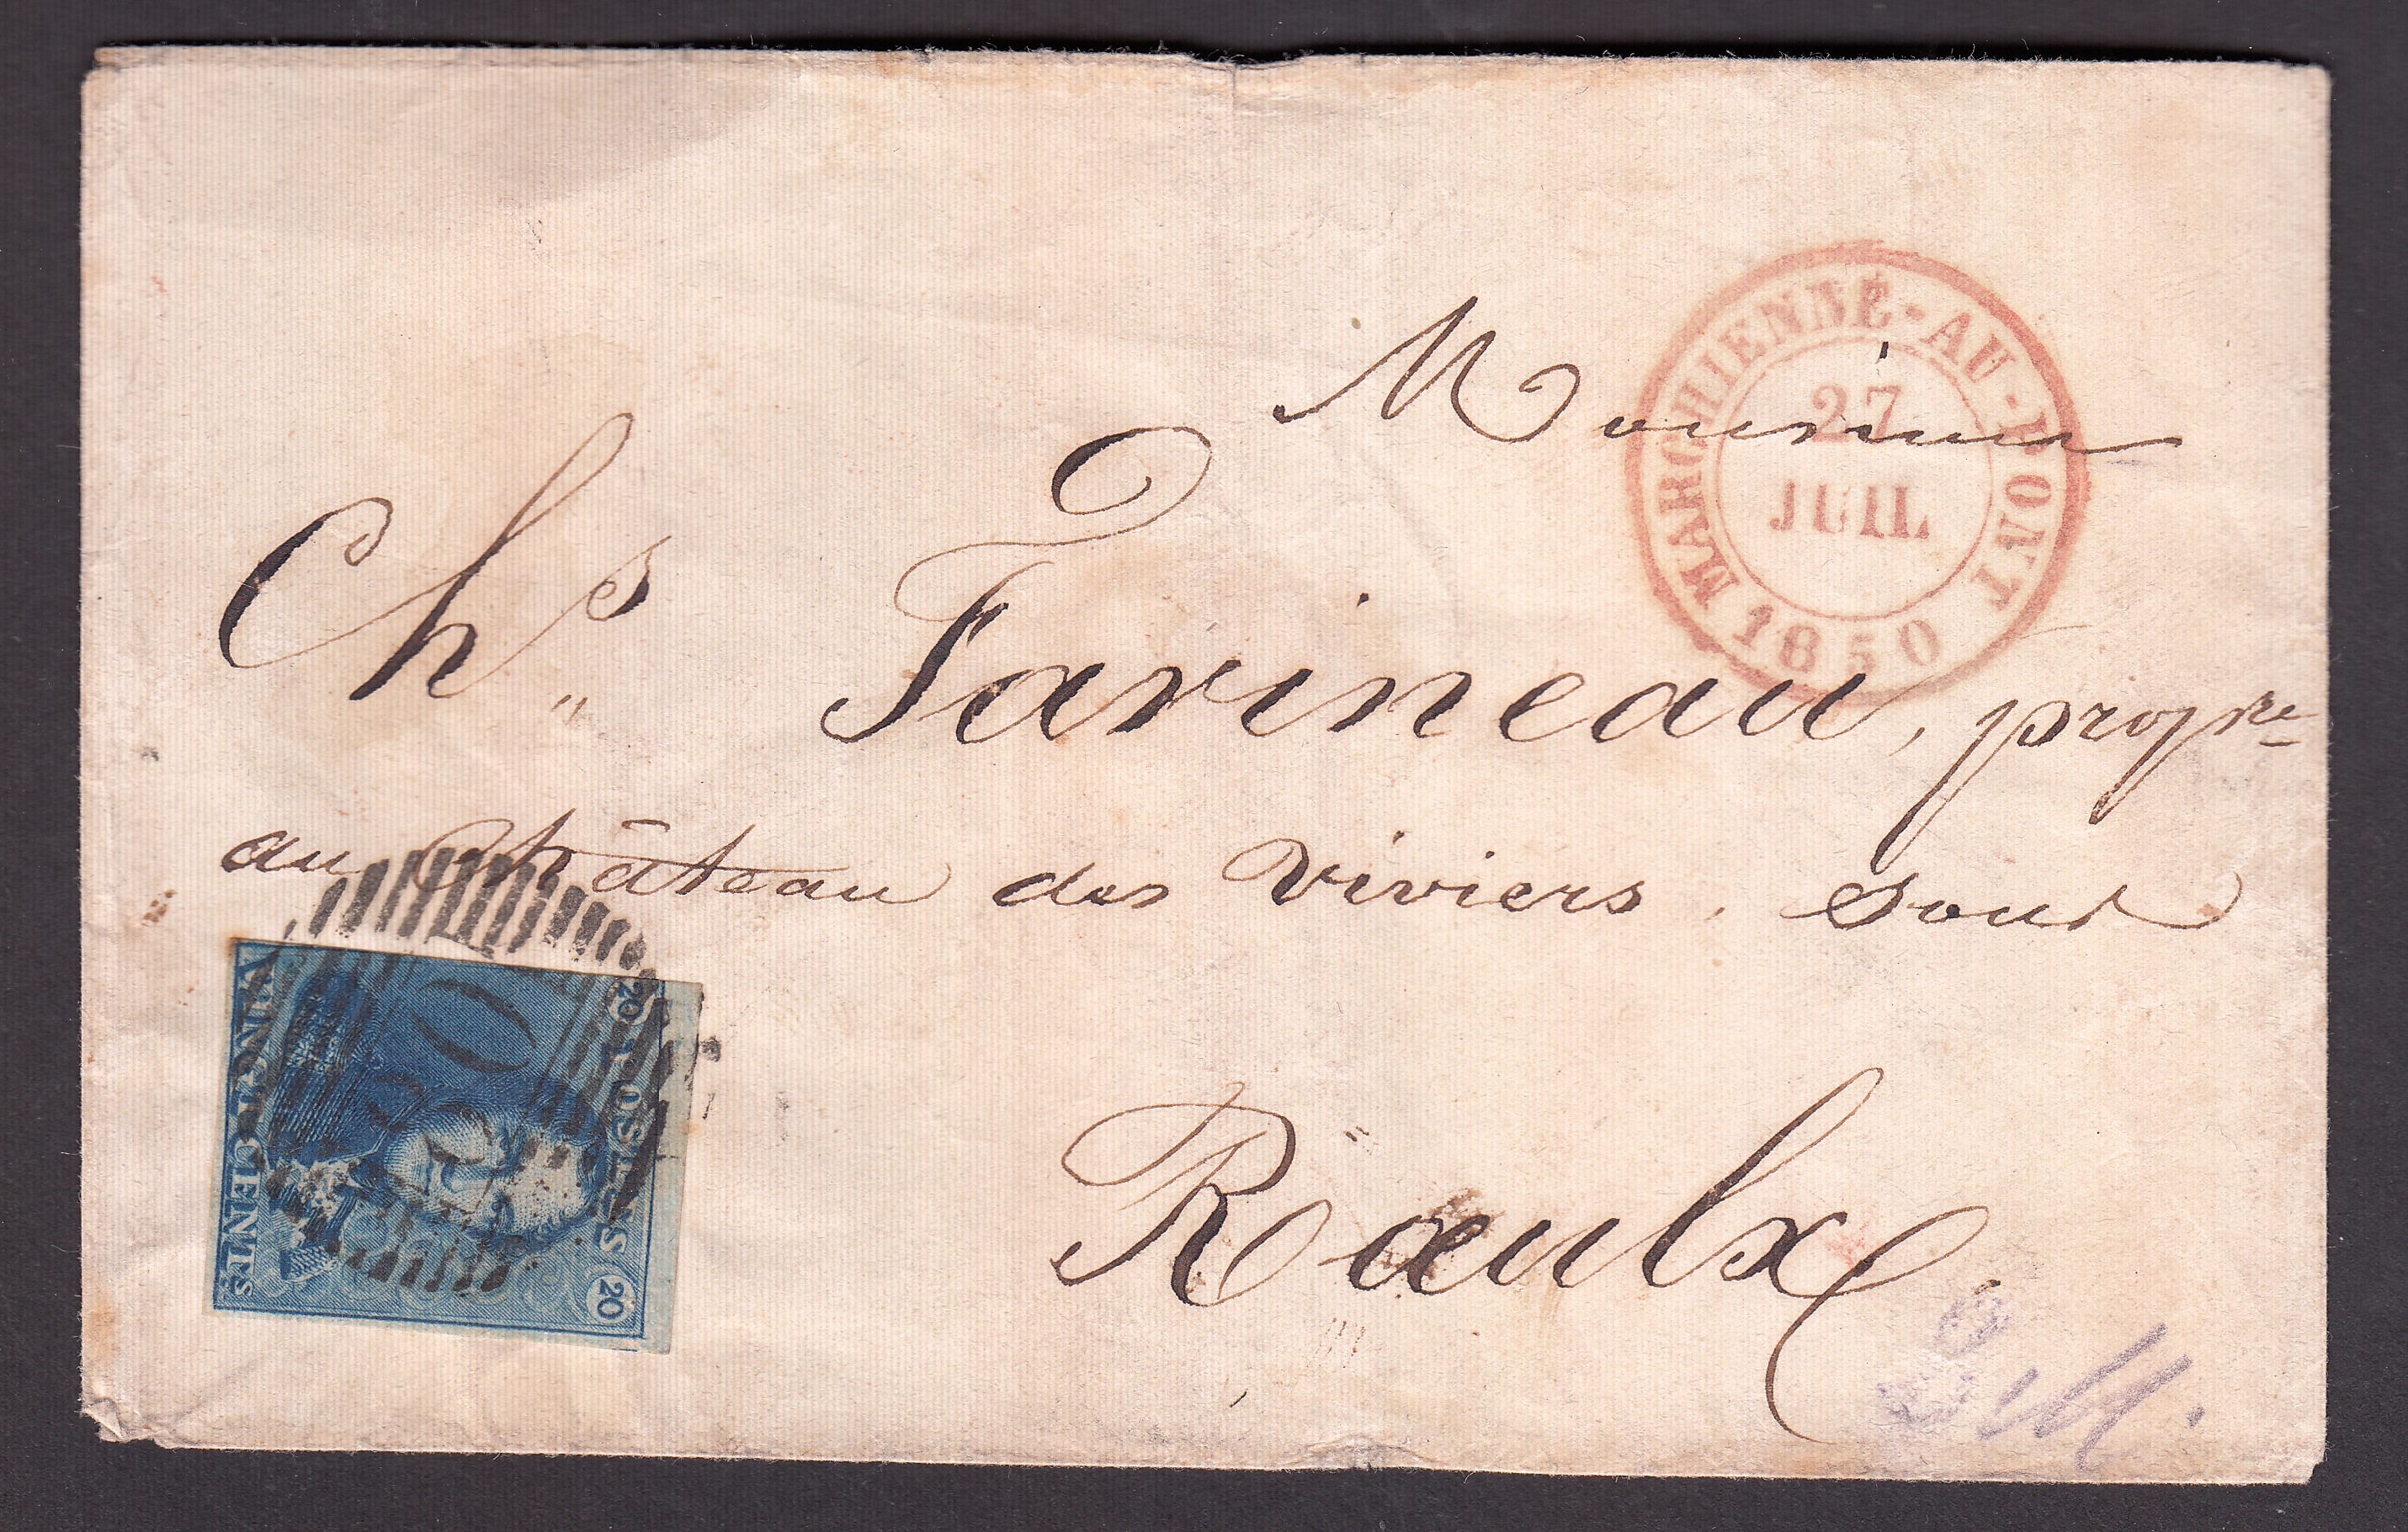 MARCHIENNE-AU-PONT
27
JUIL
1850
Monsieur
Chs Farineau, propre
au château des Viviers, sous
Rœulx.
20 POSTES 20
VINGT CENTS
80